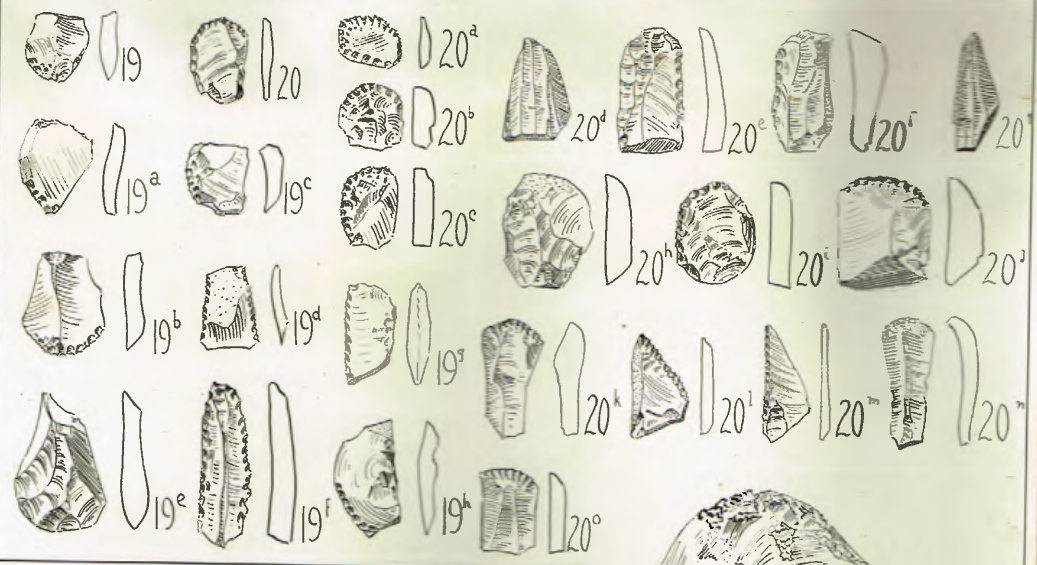 19
20
20ᵃ
20ᵇ
20ᵈ
20ᵉ
20ᶠ
20ᵍ
19ᵃ
19ᶜ
20ᶜ
20ʰ
20ⁱ
20ʲ
19ᵇ
19ᵈ
19ᵍ
20ᵏ
20ˡ
20ᵐ
20ⁿ
19ᵉ
19ᶠ
19ʰ
20ᵒ